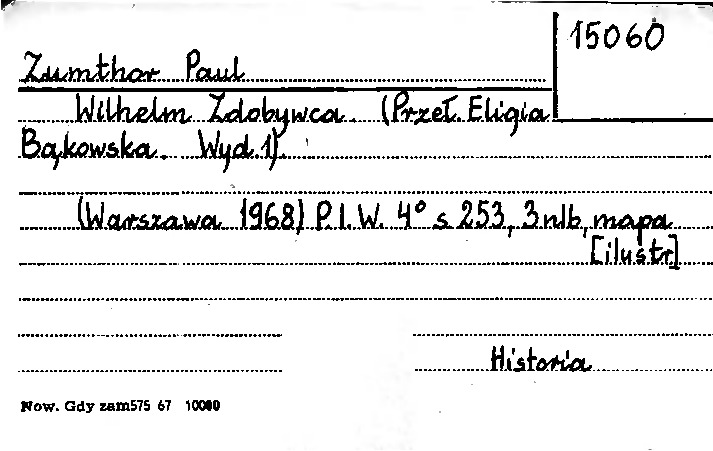 15060
Zumthor Paul
Wilhelm Zdobywca. (Przeł. Eligia
Bąkowska. Wyd. 1).
(Warszawa 1968) P.I.W. 4° s 253, 3 nlb, mapa
[ilustr]
Historia
Now. Gdy zam 575 67 10000